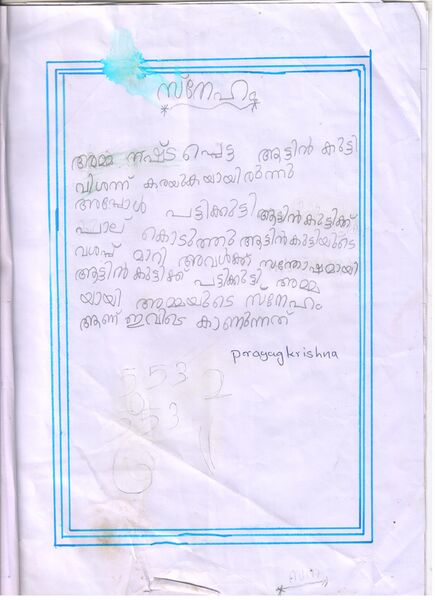 സ്നേഹം
അമ്മ നഷ്ടപ്പെട്ട ആട്ടിൻ കുട്ടി
വിശന്ന് കരയുകയായിരുന്നു
അപ്പോൾ പട്ടിക്കുട്ടി ആട്ടിൻകുട്ടിക്ക്
പാല് കൊടുത്തു ആട്ടിൻകുട്ടിയുടെ
മാറി അവൾക്ക് സന്തോഷമായി
ആട്ടിൻ കുട്ടിക്ക് പട്ടിക്കുട്ടി അമ്മ
യായി അമ്മയുടെ സ്നേഹം
ആണ് ഇവിടെ കാണുന്നത്
prayag krishna
553 2
553